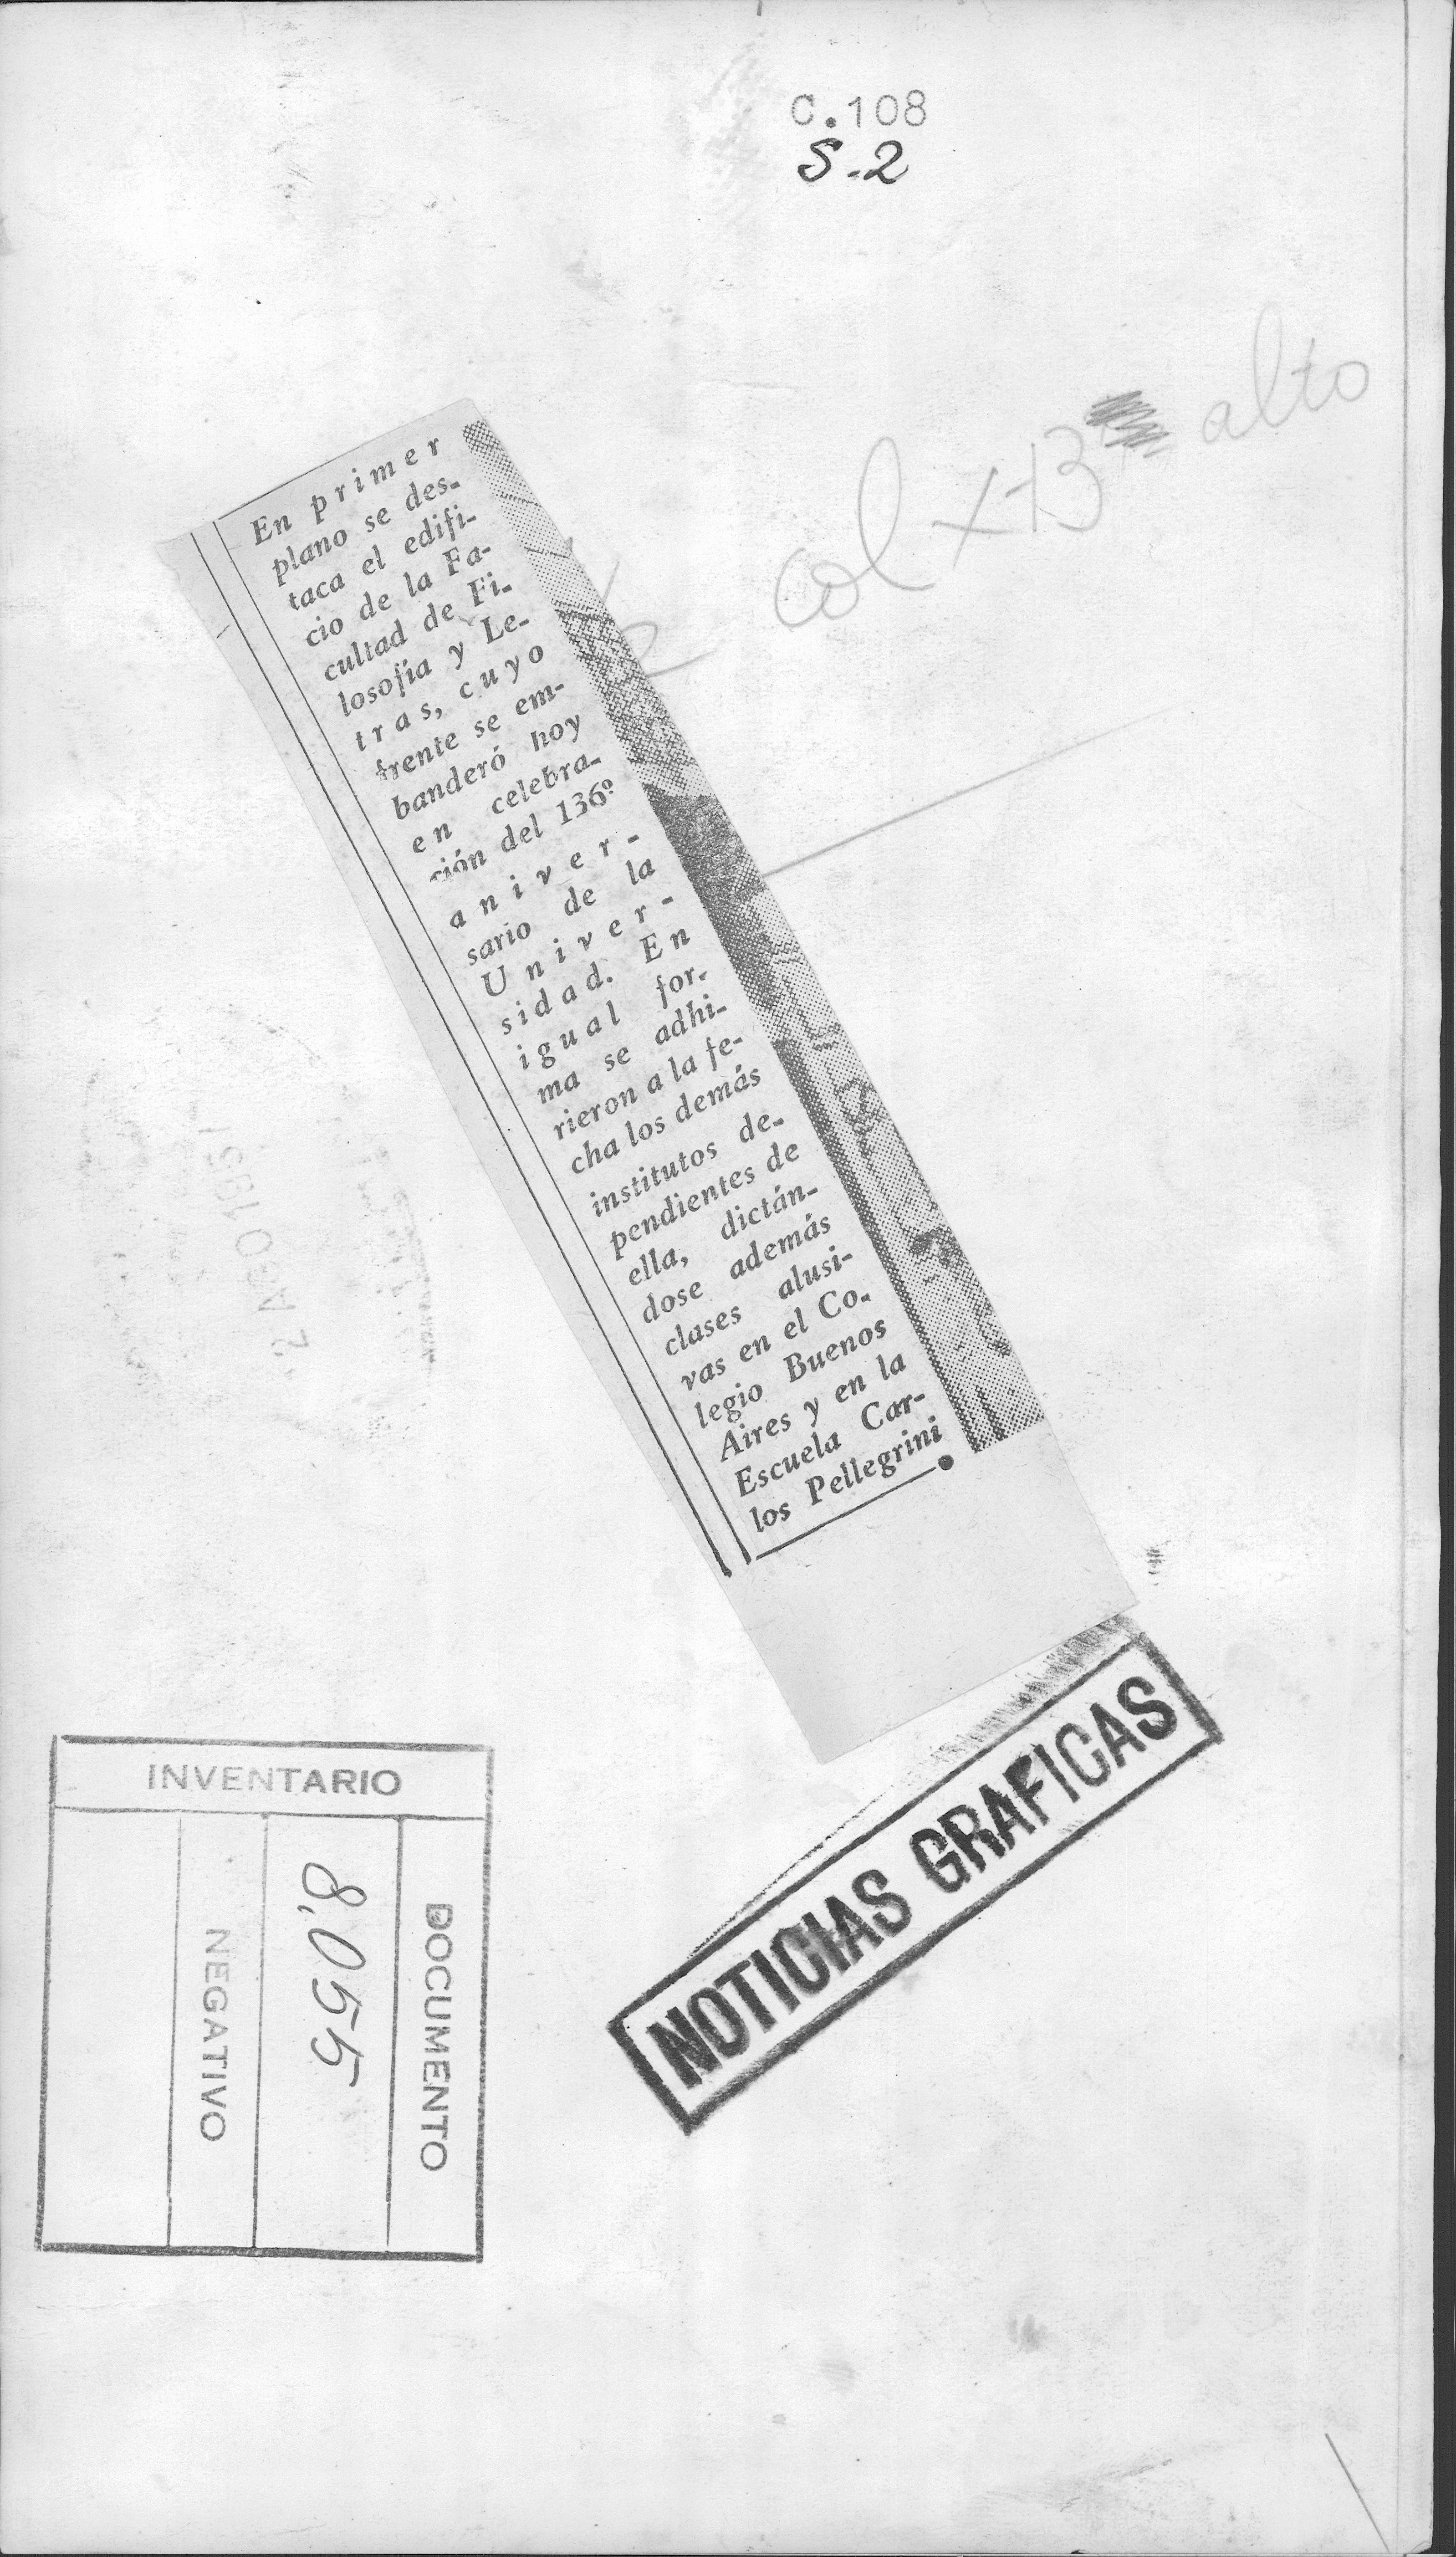 C.108
S.2
col x 13 alto
En primer
plano se des-
taca el edifi-
cio de la Fa-
cultad de Fi-
losofía y Le-
tras, cuyo
frente se em-
banderó hoy
en celebra-
ción del 136º
aniver-
sario de la
Univer-
sidad. En
igual for-
ma se adhi-
rieron a la fe-
cha los demás
institutos de-
pendientes de
ella, dictán-
dose además
clases alusi-
vas en el Co-
legio Buenos
Aires y en la
Escuela Car-
los Pellegrini
NOTICIAS GRAFICAS
INVENTARIO
DOCUMENTO
8.055
NEGATIVO